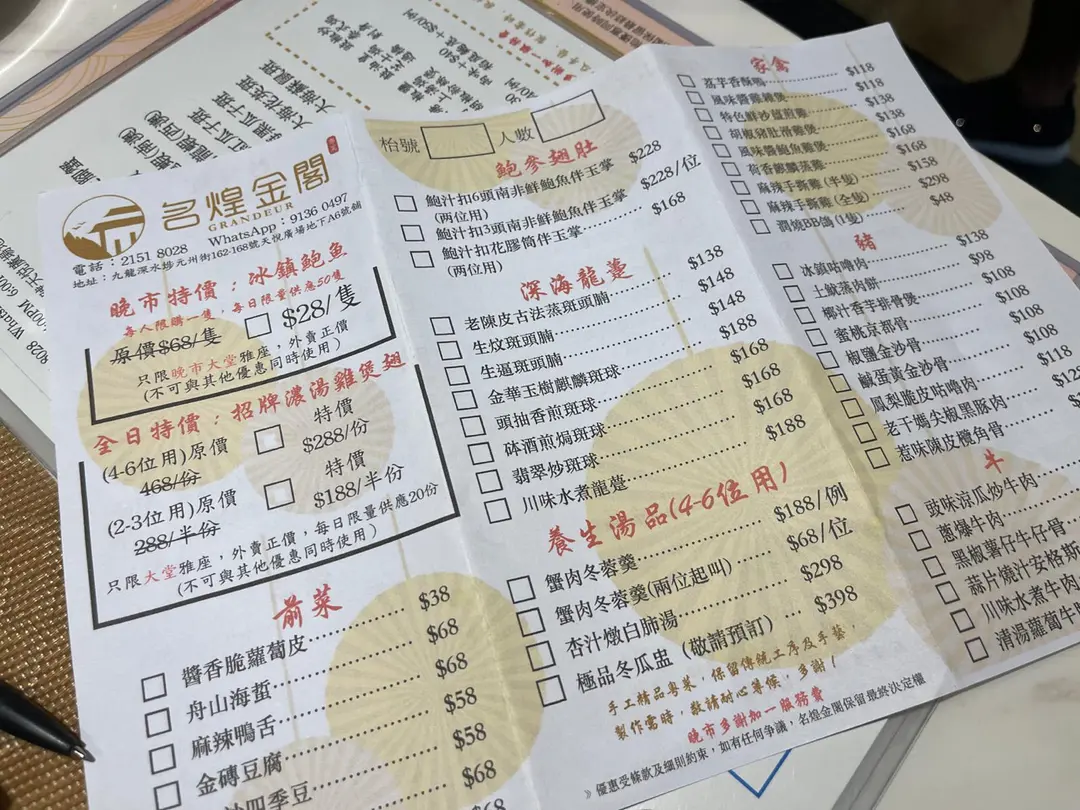 名煌金閣
GRANDEUR
電話：2151 8028 WhatsApp：9136 0497
地址：九龍深水埗元州街162-168號天悅廣場地下A6號舖
晚市特價：冰鎮鮑魚
每人限購一隻，每日限量供應50隻
原價$68/隻 $28/隻
只限晚市大堂雅座，外賣正價
(不可與其他優惠同時使用)
全日特價：招牌濃湯雞煲翅
(4-6位用)原價 特價
468/份 $288/份
(2-3位用)原價 特價
288/半份 $188/半份
只限大堂雅座，外賣正價，每日限量供應20份
(不可與其他優惠同時使用)
前菜
醬香脆蘿蔔皮 $38
舟山海蜇 $68
麻辣鴨舌 $68
金磚豆腐 $58
四季豆 $58
$68
$68
枱號 人數
鮑參翅肚
鮑汁扣6頭南非鮮鮑魚伴玉掌 $228
(兩位用)
鮑汁扣3頭南非鮮鮑魚伴玉掌 $228/位
鮑汁扣花膠筒伴玉掌 $168
(兩位用)
深海龍躉
老陳皮古法蒸斑頭腩 $138
生炆斑頭腩 $148
生逼斑頭腩 $148
金華玉樹麒麟斑球 $188
頭抽香煎斑球 $168
砵酒煎焗斑球 $168
翡翠炒斑球 $168
川味水煮龍躉 $188
養生湯品(4-6位用)
蟹肉冬蓉羹 $188/例
蟹肉冬蓉羹(兩位起叫) $68/位
杏汁燉白肺湯 $298
極品冬瓜盅(敬請預訂) $398
手工精品粵菜，保留傳統工序及手藝
製作需時，敬請耐心專候，多謝！
晚市多謝加一服務費
》優惠受條款及細則約束，如有任何爭議，名煌金閣保留最終決定權
家禽
荔芋香酥鴨 $118
風味醬雞煲 $118
特色鮮沙爐煎雞 $138
胡椒豬肚滑雞煲 $138
風味醬鮑魚雞煲 $168
荷香麒麟蒸雞 $168
麻辣手撕雞(半隻) $158
麻辣手撕雞(全隻) $298
潤燒BB鴿(1隻) $48
豬
冰鎮咕嚕肉 $138
土魷蒸肉餅 $98
椰汁香芋排骨煲 $108
蜜桃京都骨 $108
椒鹽金沙骨 $108
鹹蛋黃金沙骨 $108
鳳梨脆皮咕嚕肉 $118
老干媽尖椒黑豚肉
惹味陳皮欖角骨
牛
豉味涼瓜炒牛肉
蔥爆牛肉
黑椒薯仔牛仔骨
蒜片燒汁安格斯
川味水煮牛肉
清湯蘿蔔牛